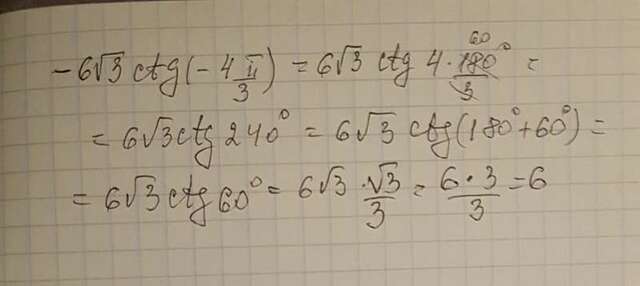 -6√3 ctg(-4 π/3) = 6√3 ctg 4 · 180°/3 60 =
= 6√3 ctg 240° = 6√3 ctg(180° + 60°) =
= 6√3 ctg 60° = 6√3 · √3/3 = 6·3/3 = 6